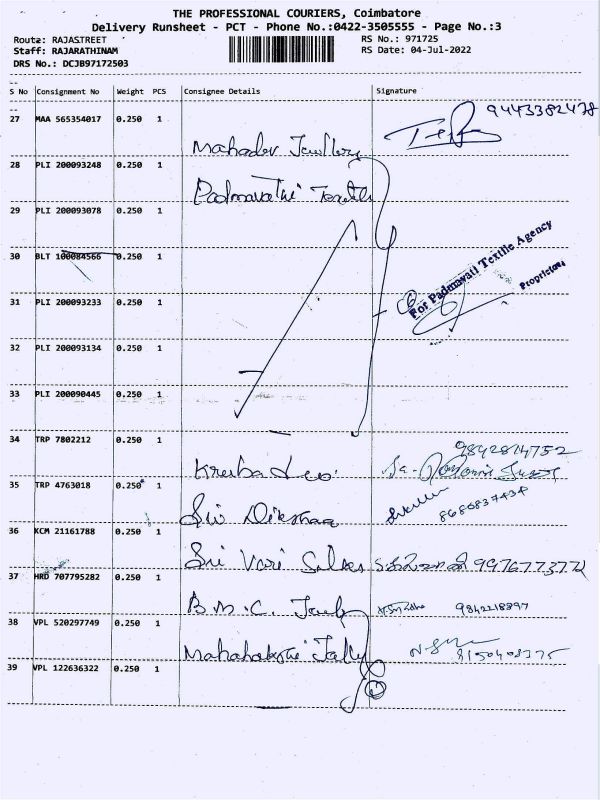 THE PROFESSIONAL COURIERS, Coimbatore
Delivery Runsheet - PCT - Phone No.:0422-3505555 - Page No.:3
Route: RAJASTREET RS No.: 971725
Staff: RAJARATHINAM RS Date: 04-Jul-2022
DRS No.: DCJB97172503
S No Consignment No Weight PCS Consignee Details Signature
27 MAA 565354017 0.250 1 9443382478
Mahadev
28 PLI 200093248 0.250 1
Padmavathi
29 PLI 200093078 0.250 1
30 BLT 100084566 0.250 1
For Padmavati Textile Agency
Proprietor
31 PLI 200093233 0.250 1
32 PLI 200093134 0.250 1
33 PLI 200090445 0.250 1
34 TRP 7802212 0.250 1
35 TRP 4763018 0.250 1
8680837434
36 KCM 21161788 0.250 1
Sri Vari 9976773772
37 HRD 707795282 0.250 1
B.M.C. 9842218897
38 VPL 520297749 0.250 1
8150408375
39 VPL 122636322 0.250 1